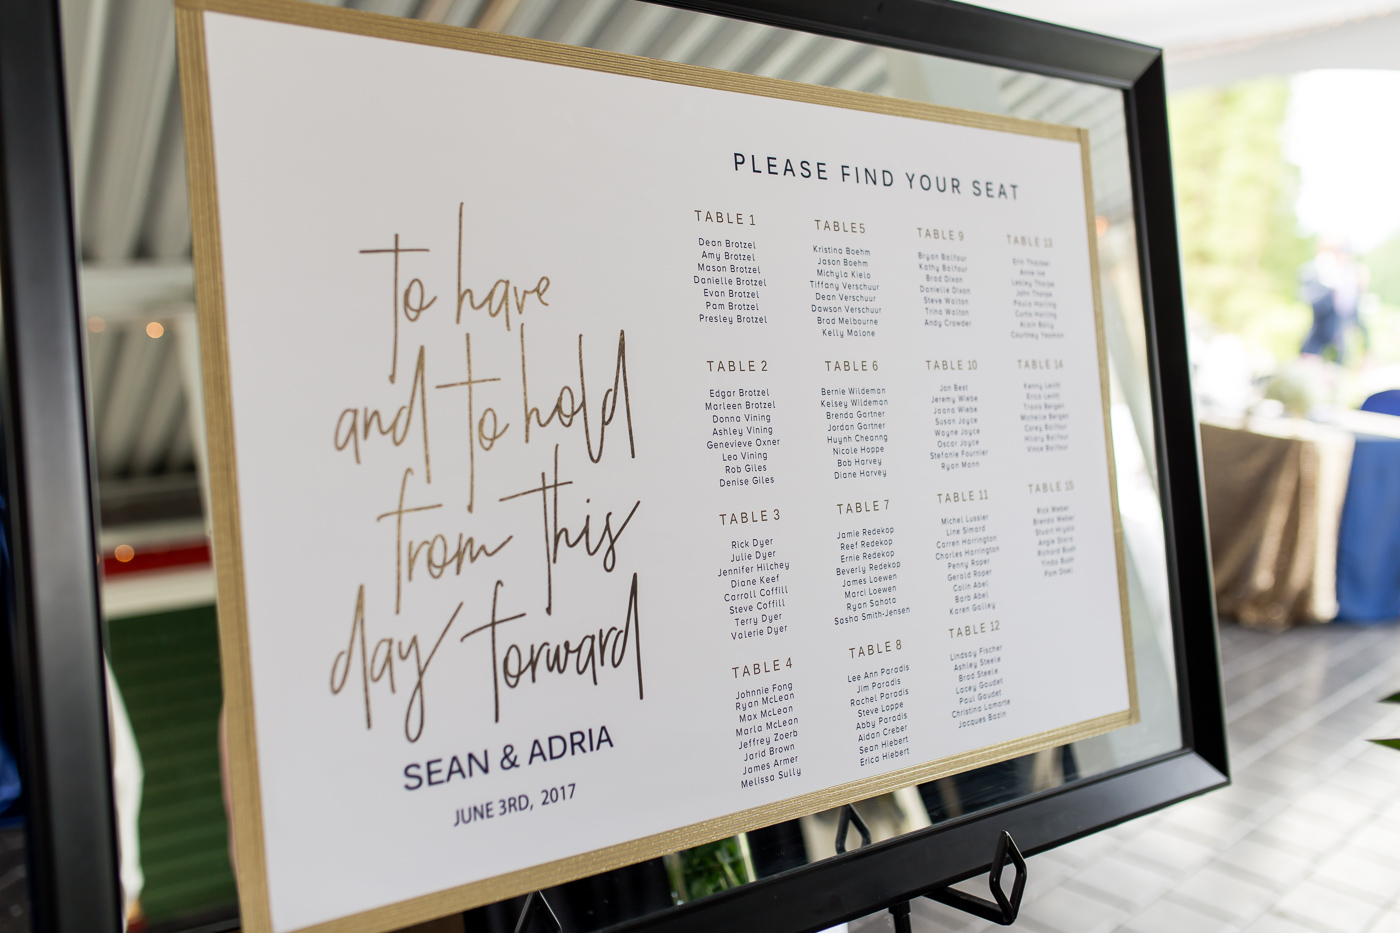 to have
and to hold
from this
day forward
SEAN & ADRIA
JUNE 3RD, 2017
PLEASE FIND YOUR SEAT
TABLE 1
Dean Brotzel
Amy Brotzel
Mason Brotzel
Danielle Brotzel
Evan Brotzel
Pam Brotzel
Presley Brotzel
TABLE 2
Edgar Brotzel
Marleen Brotzel
Donna Vining
Ashley Vining
Genevieve Oxner
Leo Vining
Rob Giles
Denise Giles
TABLE 3
Rick Dyer
Julie Dyer
Jennifer Hilchey
Diane Keef
Carroll Coffill
Steve Coffill
Terry Dyer
Valerie Dyer
TABLE 4
Johnnie Fong
Ryan McLean
Max McLean
Marla McLean
Jeffrey Zoerb
Jarid Brown
James Armer
Melissa Sully
TABLE5
Kristina Boehm
Jason Boehm
Michyla Kielo
Tiffany Verschuur
Dean Verschuur
Dawson Verschuur
Brad Melbourne
Kelly Malone
TABLE 6
Bernie Wildeman
Kelsey Wildeman
Brenda Gartner
Jordan Gartner
Huynh Cheanng
Nicole Hoppe
Bob Harvey
Diane Harvey
TABLE 7
Jamie Redekop
Reef Redekop
Ernie Redekop
Beverly Redekop
James Loewen
Marci Loewen
Ryan Sahota
Sasha Smith-Jensen
TABLE 8
Lee Ann Paradis
Jim Paradis
Rachel Paradis
Steve Loppe
Abby Paradis
Aidan Creber
Sean Hiebert
Erica Hiebert
TABLE 9
Bryan Balfour
Kathy Balfour
Brad Dixon
Danielle Dixon
Steve Walton
Trina Walton
Andy Crowder
TABLE 10
Jan Best
Jeremy Wiebe
Joana Wiebe
Susan Joyce
Wayne Joyce
Oscar Joyce
Stefanie Fournier
Ryan Mann
TABLE 11
Michel Lussier
Line Simard
Carren Harrington
Charles Harrington
Penny Roper
Gerald Roper
Colin Abel
Barb Abel
Karen Galley
TABLE 12
Lindsay Fischer
Ashley Steele
Brad Steele
Lacey Gaudet
Paul Gaudet
Christina Lamarte
Jacques Bazin
TABLE 13
Lesley Thorpe
John Thorpe
Paula Harling
Curtis Harling
Courtney Yeoman
TABLE 14
Kenny Levitt
Erica Levitt
Travis Bergen
Michelle Bergen
Corey Balfour
Hilary Balfour
Vince Balfour
TABLE 15
Rick Weber
Brenda Weber
Angie Stard
Richard Bush
Yinda Bush